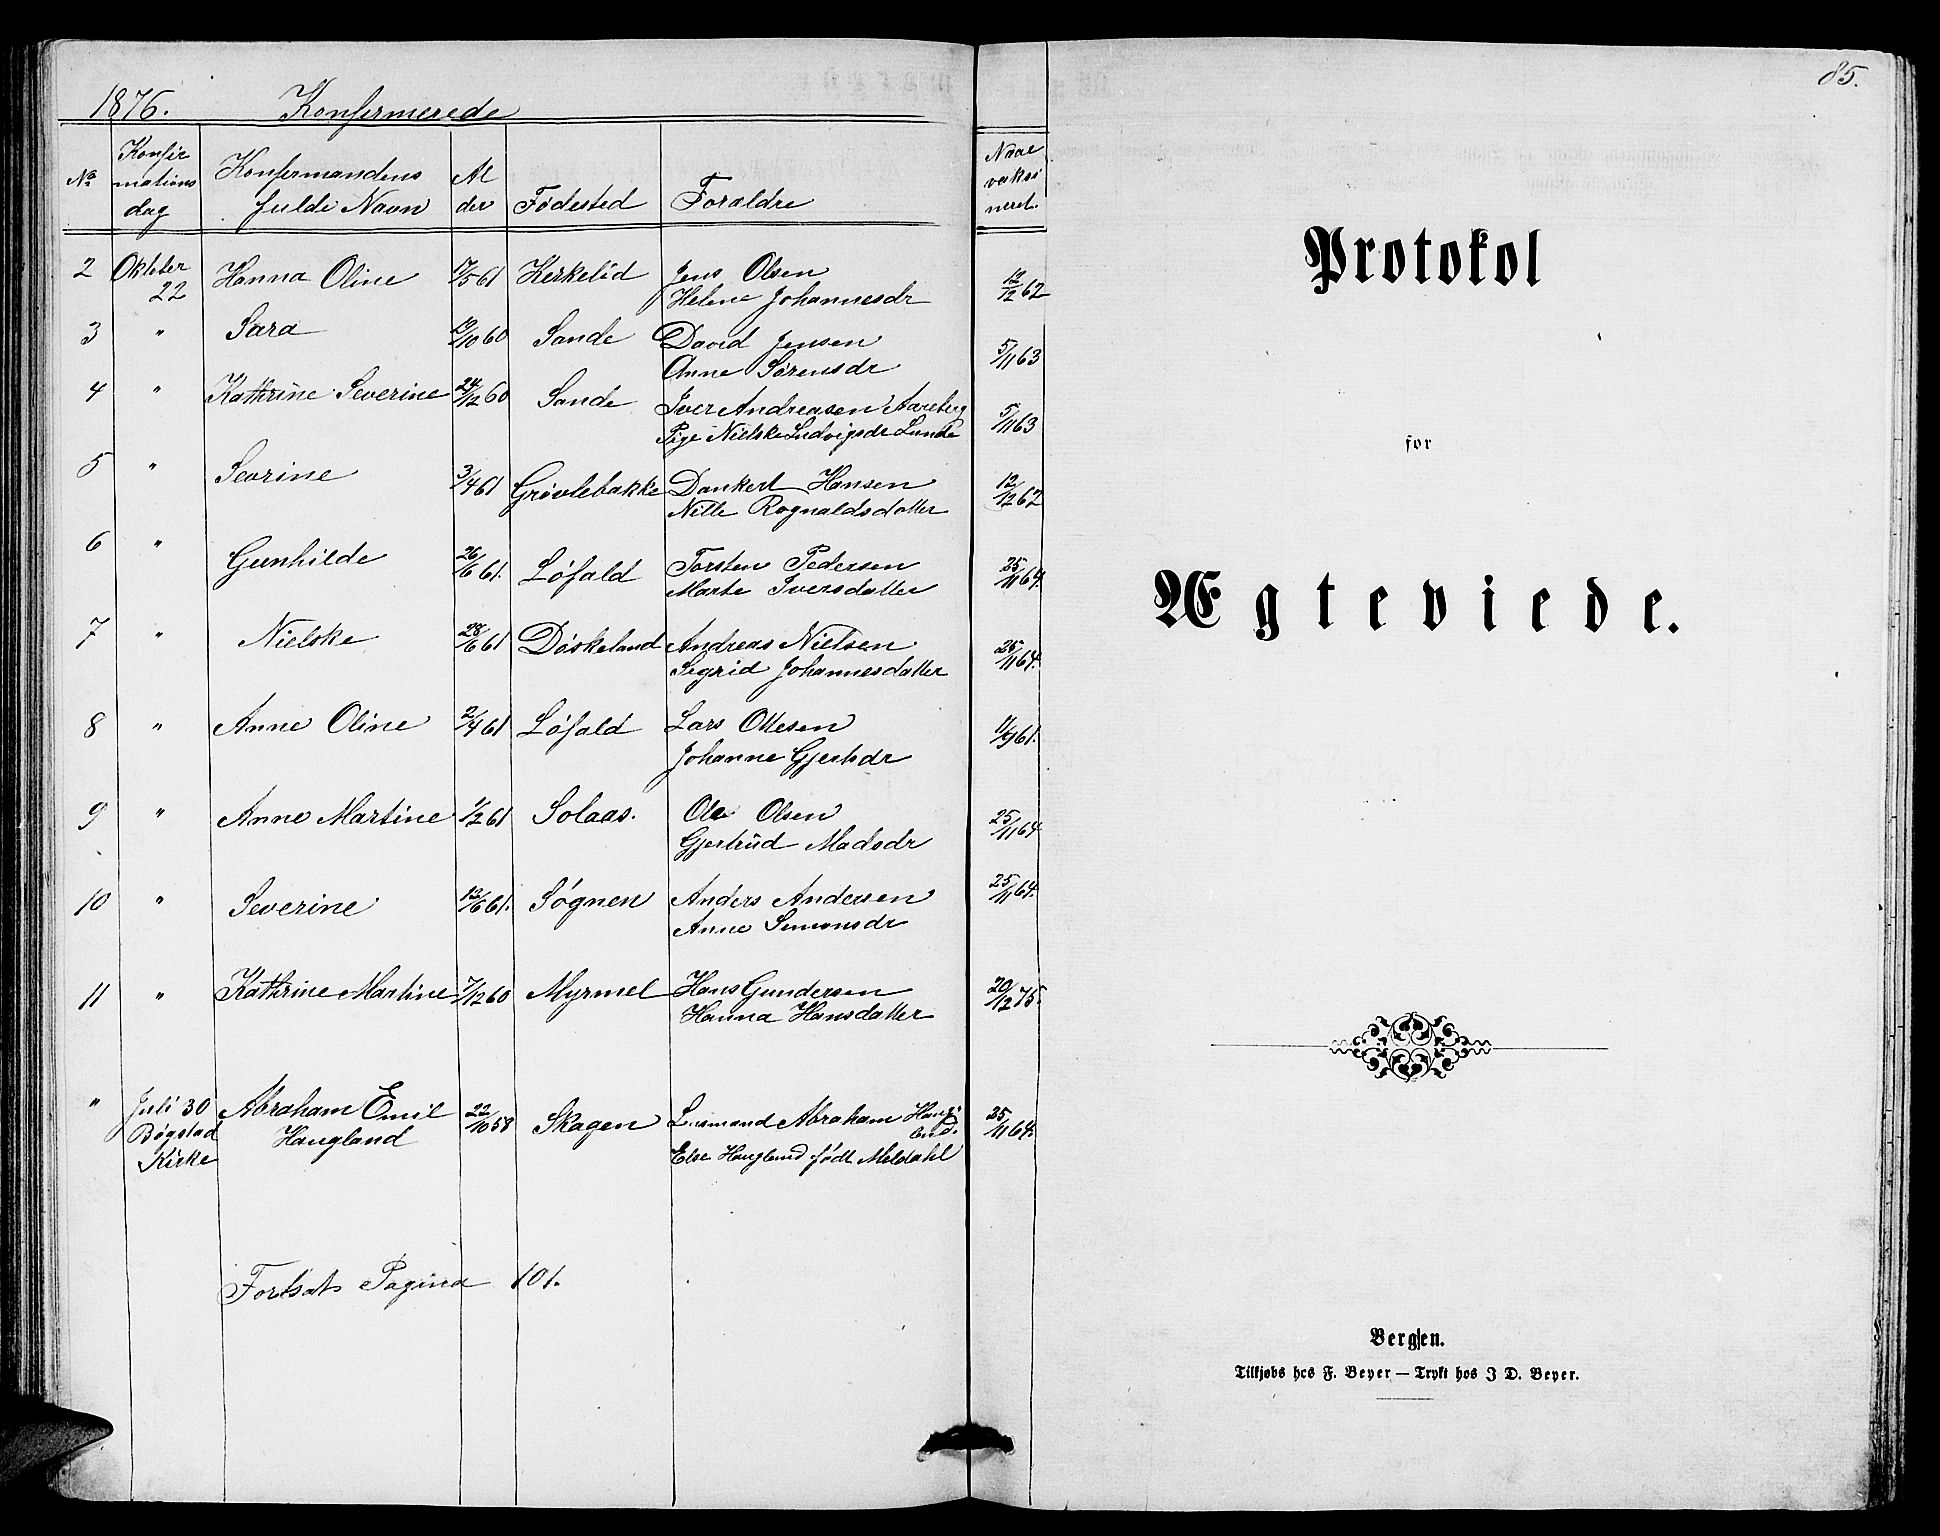 1876. Konfermerede
No Konfir Konfermandens Al Naar
mations fulde Navn der Fødested Foraldre vaksi
dag neret.
2 Oktober Hanna Oline 17/5 61 Kirkelid Jens Olsen 12/12 62
22 Helene Johannesdr
3 " Sara 19/10 60 Sande David Jensen 5/11 63
Anne Sørensdr
4 " Kathrine Severine 24/12 60 Sande Iver Andreasen Aareberg 5/11 63
Pige Nielske Ludvigsdr Lunde
5 " Sevrine 3/4 61 Grøvlebakke Dankert Hansen 12/12 62
Nille Rognaldsdatter
6 " Gunhilde 26/6 61. Løfald Torsten Pedersen 25/11 64.
Marte Iversdatter
7 " Nielske 28/6 61 Døskeland Andreas Nielsen 25/11 64.
Sigrid Johannesdatter
8 " Anne Oline 2/4 61 Løfald Lars Ottesen 11/9 61.
Johanne Gjertsdr
9 " Anne Martine 1/2 61 Solaas. Ole Olsen 25/11 64
Gjertrud Madsdr
10 " Severine 13/6 61. Søgnen Anders Andersen 25/11 64.
Anne Simonsdr
11 " Kathrine Martine 7/12 60 Myrmel Hans Gundersen 20/12 75.
Hanna Hansdatter
" Juli 30 Abraham Emil 22/10 58 Skagen Lensmand Abraham Haug- 25/11 64.
Bøgstad Haugland land.
Kirke Else Haugland født Meldahl
Fortsat Pagina 101.
85.
Protokol
for
Ægteviede.
Bergen.
Tilkjøbs hos F. Beyer — Trykt hos J D. Beyer.